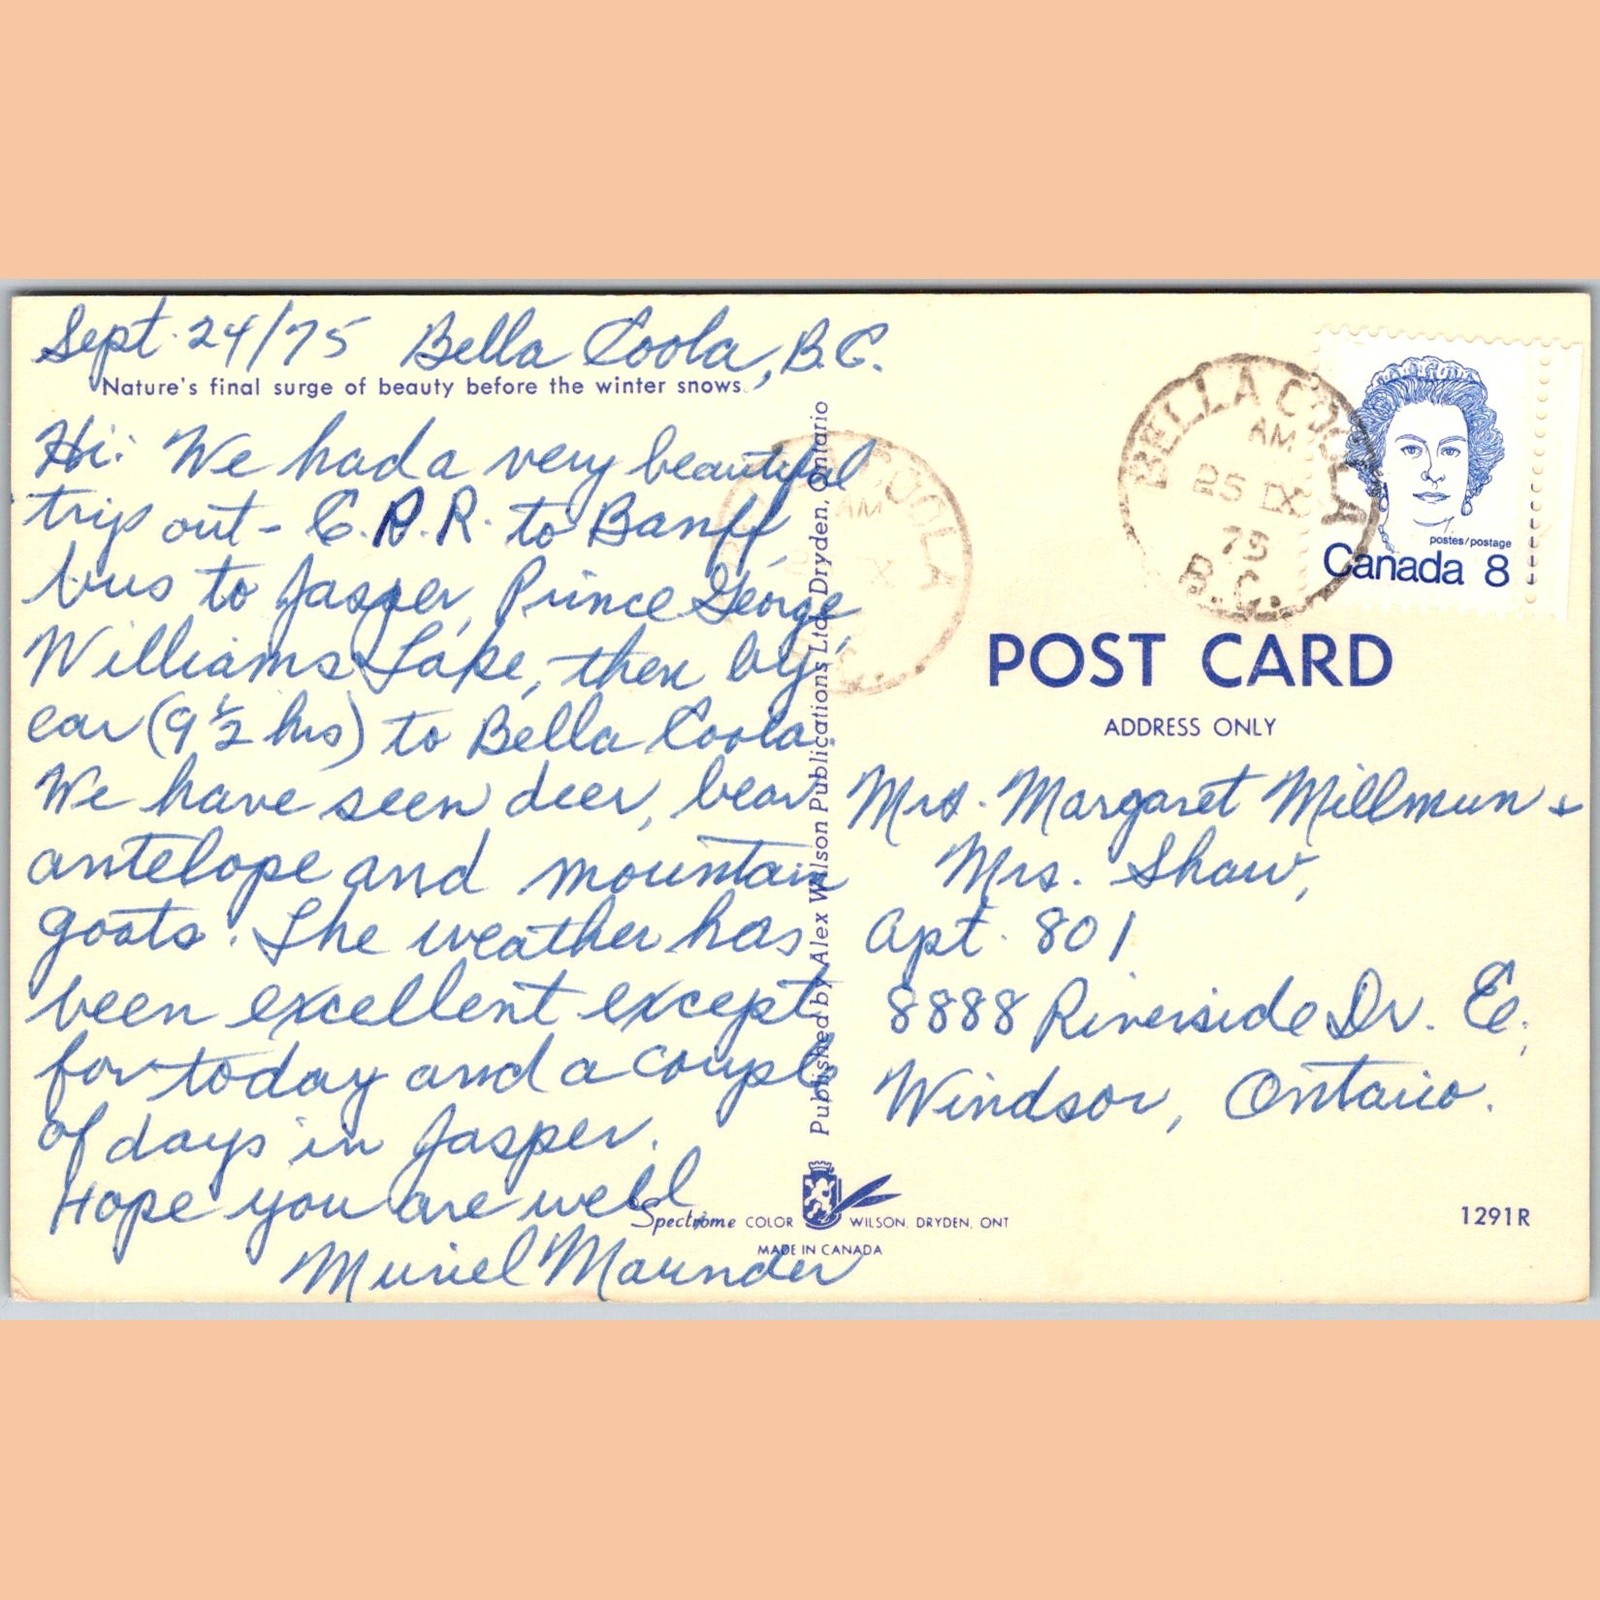 Sept. 24/75 Bella Coola, B.C.
Nature's final surge of beauty before the winter snows.
Hi: We had a very beautiful
trip out - C.P.R. to Banff
bus to Jasper, Prince George,
Williams Lake, then by
car (9 1/2 hrs) to Bella Coola.
We have seen deer, bear
antelope and mountain
goats. The weather has
been excellent except
for today and a couple
of days in Jasper.
Hope you are well
Muriel Maunder
Published by Alex Wilson Publications Ltd., Dryden, Ontario
Spectrome COLOR WILSON, DRYDEN, ONT
MADE IN CANADA
COOLA
AM
BELLA COOLA
AM
25 IX
75
B.C.
postes/postage
Canada 8
POST CARD
ADDRESS ONLY
Mrs. Margaret Millmun &
Mrs. Shaw,
Apt. 801
8888 Riverside Dr. E.,
Windsor, Ontario.
1291R